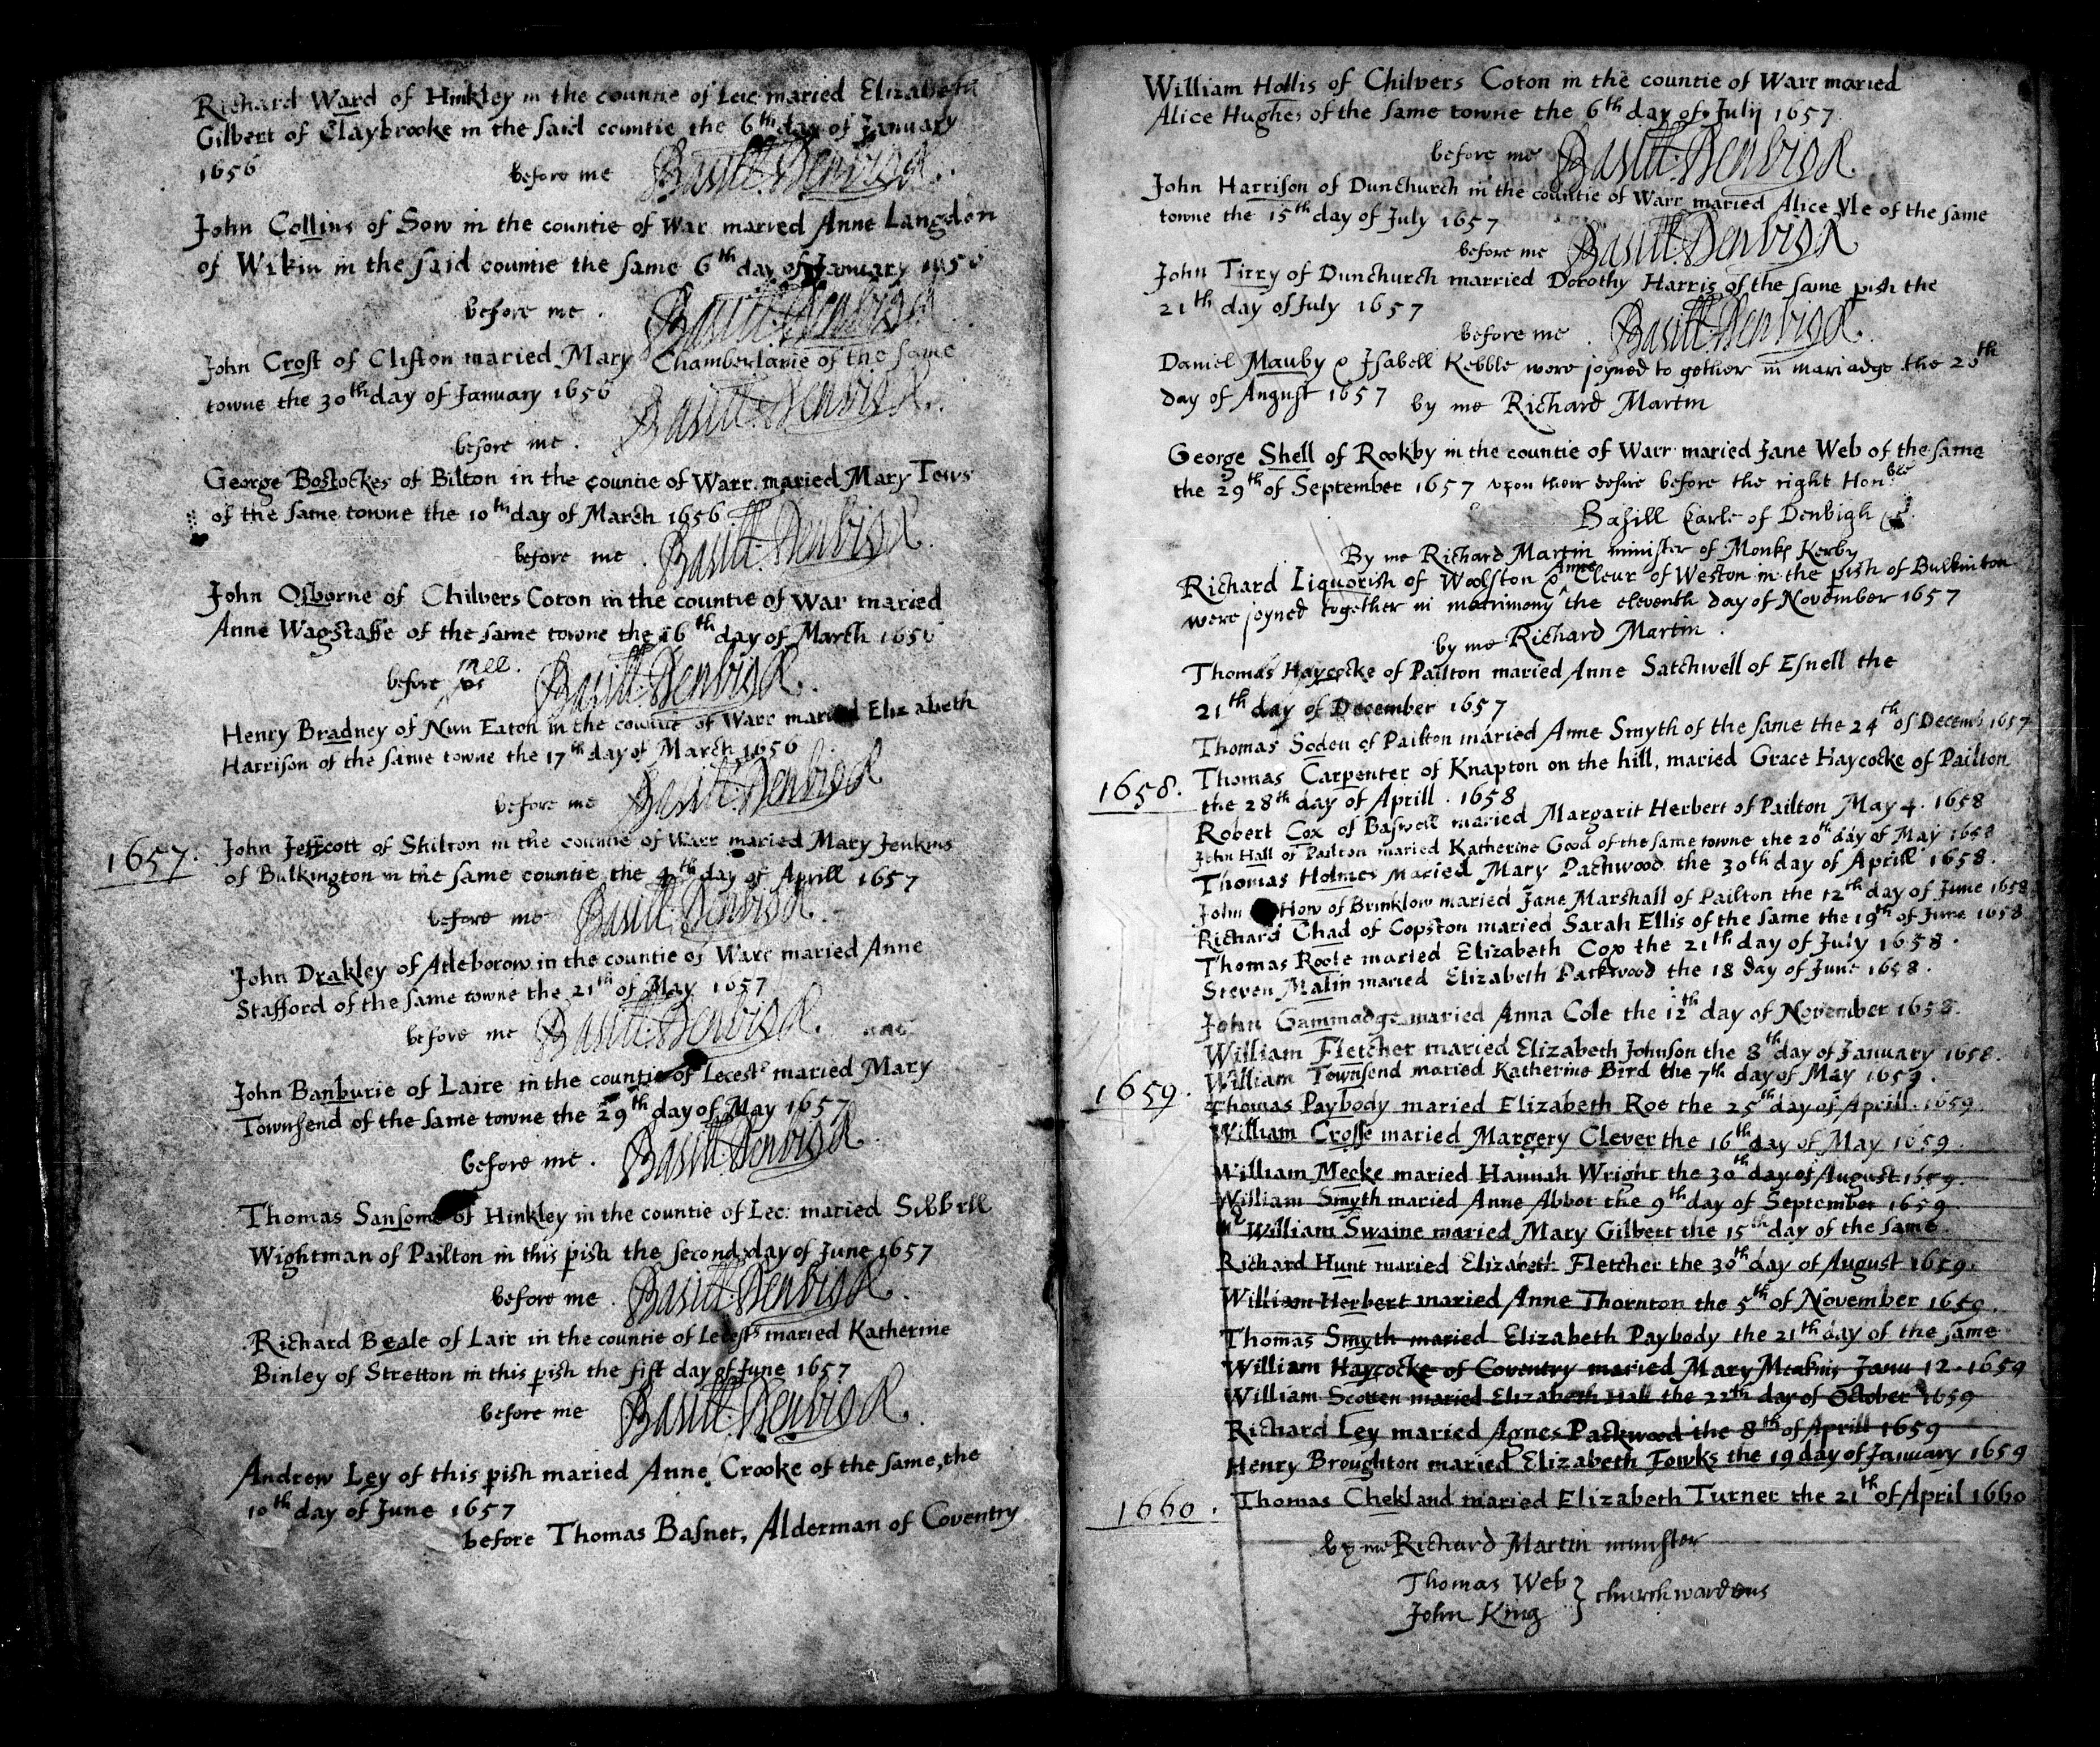 Richard Ward of Hinkley in the countie of Leic maried Elizabeth
Gilbert of Claybrooke in the said countie the 6th day of January
1656
before me Basill: Denbigh.
John Collins of Sow in the countie of War maried Anne Langdon
of Wikin in the said countie the same 6th day of January 1656
before me. Basill: Denbigh
John Croft of Clifton maried Mary Chamberlaine of the same
towne the 30th day of January 1656
before me. Basill: Denbigh.
George Bostockes of Bilton in the countie of Warr. maried Mary Tews
of the same towne the 10th day of March 1656.
before me. Basill: Denbigh.
John Osborne of Chilvers Coton in the countie of War maried
Anne Wagstaffe of the same towne the 16th day of March 1656
before mee. Basill: Denbigh.
Henry Bradney of Nun Eaton in the countie of Warr maried Elizabeth
Harrison of the same towne the 17th day of March 1656
before me Basill: Denbigh
1657. John Jeffcott of Shilton in the countie of Warr maried Mary Jenkins
of Bulkington in the same countie the 4th day of Aprill 1657
before me Basill: Denbigh.
John Drakley of Atleborow in the countie of Warr maried Anne
Stafford of the same towne the 21th of May 1657
before me Basill: Denbigh.
John Banburie of Laire in the countie of Lecest maried Mary
Townsend of the same towne the 29th day of May 1657
before me. Basill: Denbigh.
Thomas Sansome of Hinkley in the countie of Lec: maried Sibbell
Wightman of Pailton in this pish the second day of June 1657
before me. Basill: Denbigh.
Richard Beale of Lair in the countie of Lecest maried Katherine
Binley of Stretton in this pish the fift day of June 1657
before me Basill: Denbigh.
Andrew Ley of this pish maried Anne Crooke of the same, the
10th day of June 1657
before Thomas Basnet, Alderman of Coventry
William Hollis of Chilvers Coton in the countie of Warr maried
Alice Hughes of the same towne the 6th day of July 1657.
before me Basill: Denbigh.
John Harrison of Dunchurch in the countie of Warr maried Alice yle of the same
towne the 15th day of July 1657
before me Basill: Denbigh.
John Tirry of Dunchurch married Dorothy Harris of the same pish the
21th day of July 1657
before me. Basill: Denbigh.
Daniel Mauby & Isabell Kebble were joyned to gether in mariadge the 20th
day of August 1657 by me Richard Martin
George Shell of Rookby in the countie of Warr maried Jane Web of the same
the 29th of September 1657 upon their desire before the right Honble
Basill Earle of Denbigh
By me Richard Martin minister of Monks Kerby
Richard Liquorish of Woolston & Anne Cleur of Weston in the pish of Bulkinton
were joyned together in matrimony the eleventh day of November 1657
by me Richard Martin.
Thomas Haycocke of Pailton maried Anne Satchwell of Esnell the
21th day of December 1657
Thomas Soden of Pailton maried Anne Smyth of the same the 24th of Decemb 1657
1658. Thomas Carpenter of Knapton on the hill, maried Grace Haycocke of Pailton
the 28th day of Aprill. 1658
Robert Cox of Baswell maried Margarit Herbert of Pailton May 4. 1658
John Hall of Pailton maried Katherine Good of the same towne the 20th day of May 1658
Thomas Holmes Maried Mary Pachwood the 30th day of Aprill 1658.
John How of Brinklow maried Jane Marshall of Pailton the 12th day of June 1658
Richard Chad of Copston maried Sarah Ellis of the same the 19th of June 1658
Thomas Roole maried Elizabeth Cox the 21th day of July 1658.
Steven Malin maried Elizabeth Packwood the 18 day of June 1658.
John Gammadge maried Anna Cole the 12th day of November 1658.
William Fletcher maried Elizabeth Johnson the 8th day of January 1658.
William Townsend maried Katherine Bird the 7th day of May 1659.
1659. Thomas Paybody maried Elizabeth Roe the 25th day of Aprill. 1659.
William Crosse maried Margery Clever the 16th day of May 1659.
William Mecke maried Hannah Wright the 30th day of August 1659.
William Smyth maried Anne Abbot the 9th day of September 1659.
Mr William Swaine maried Mary Gilbert the 15th day of the same.
Richard Hunt maried Elizabeth Fletcher the 30th day of August 1659.
William Herbert maried Anne Thornton the 5th of November 1659.
Thomas Smyth maried Elizabeth Paybody the 21th day of the same
William Haycocke of Coventry maried Mary Meakins Janu 12. 1659
William Scotten maried Elizabeth Hall the 22th day of October 1659
Richard Ley maried Agnes Packwood the 8th of Aprill 1659
Henry Broughton maried Elizabeth Fowks the 19 day of January 1659
1660. Thomas Chekland maried Elizabeth Turner the 21th of April 1660
by me Richard Martin minister
Thomas Web } churchwardens
John King